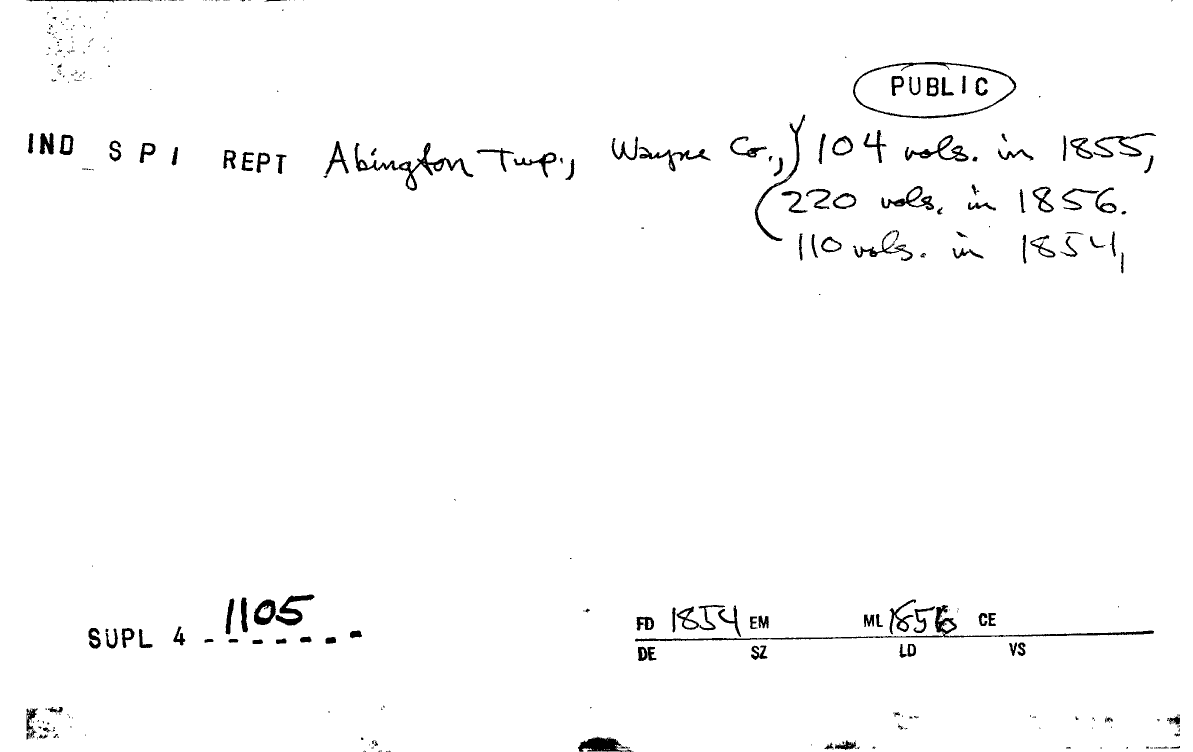 PUBLIC
IND S P I REPT Abington Twp., Wayne Co., 104 vols. in 1855,
220 vols. in 1856.
110 vols. in 1854,
SUPL 4 - 1105
FD 1854 EM ML 1856 CE
DE SZ LD VS